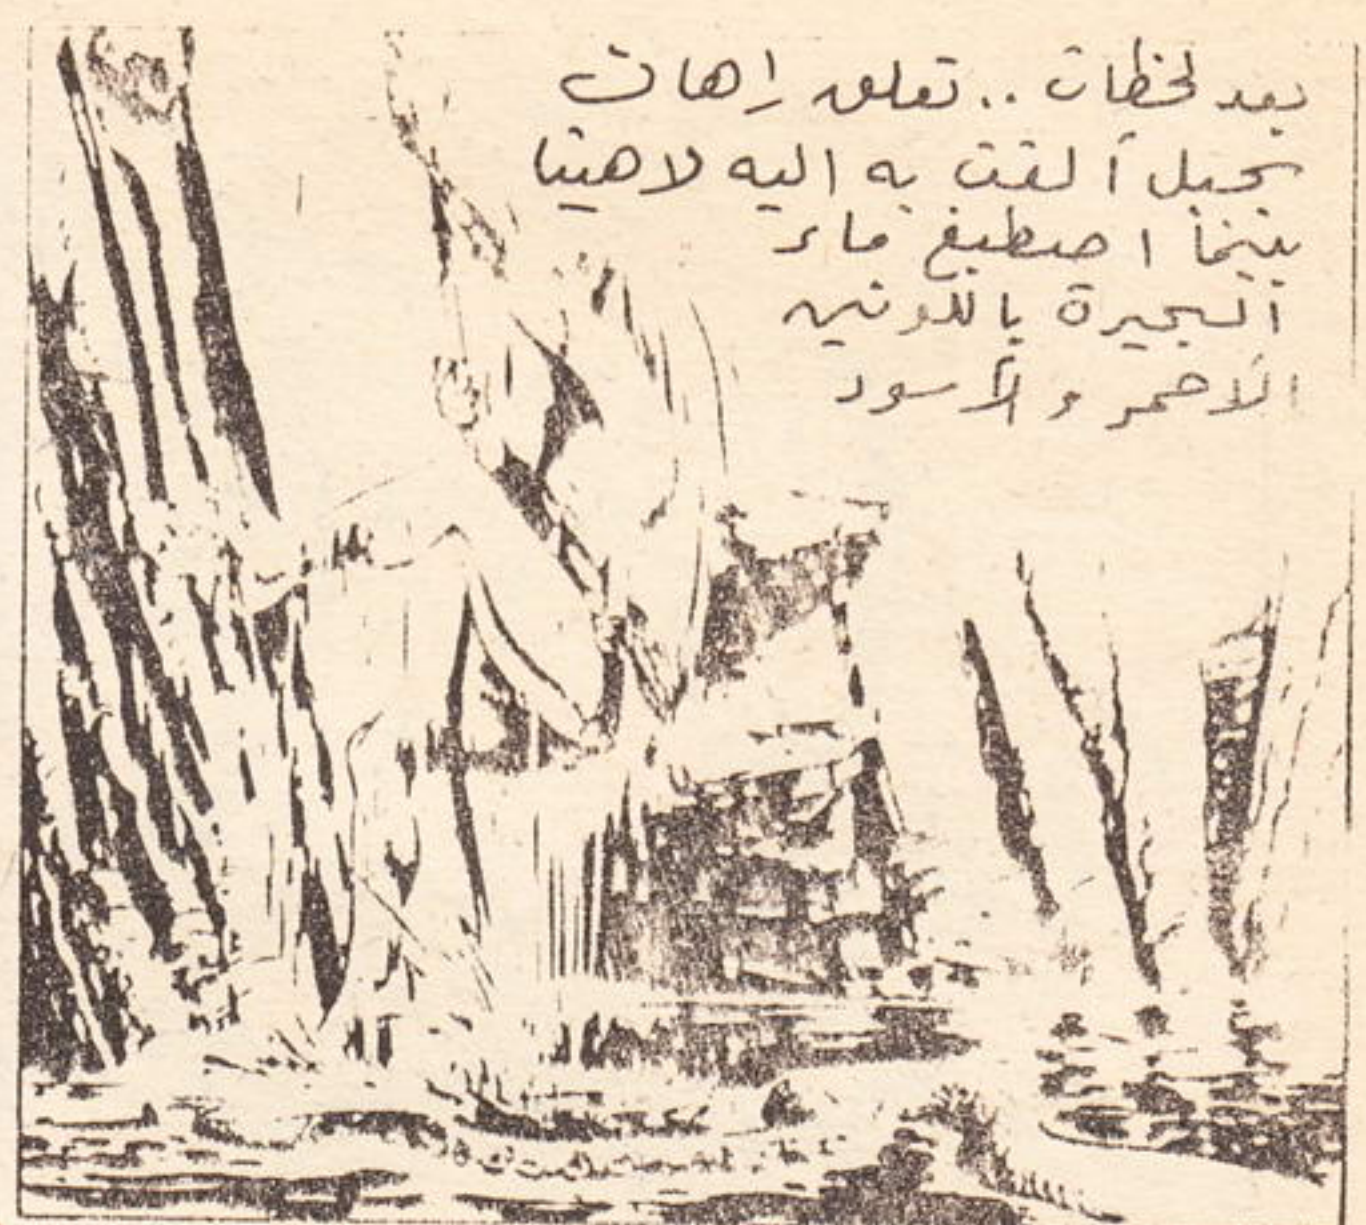 بعد لحظات .. تعلق راهان
بحبل ألقت به اليه لاهيتا
بينما اصطبغ ماء
البحيرة باللونين
الأحمر و الأسود